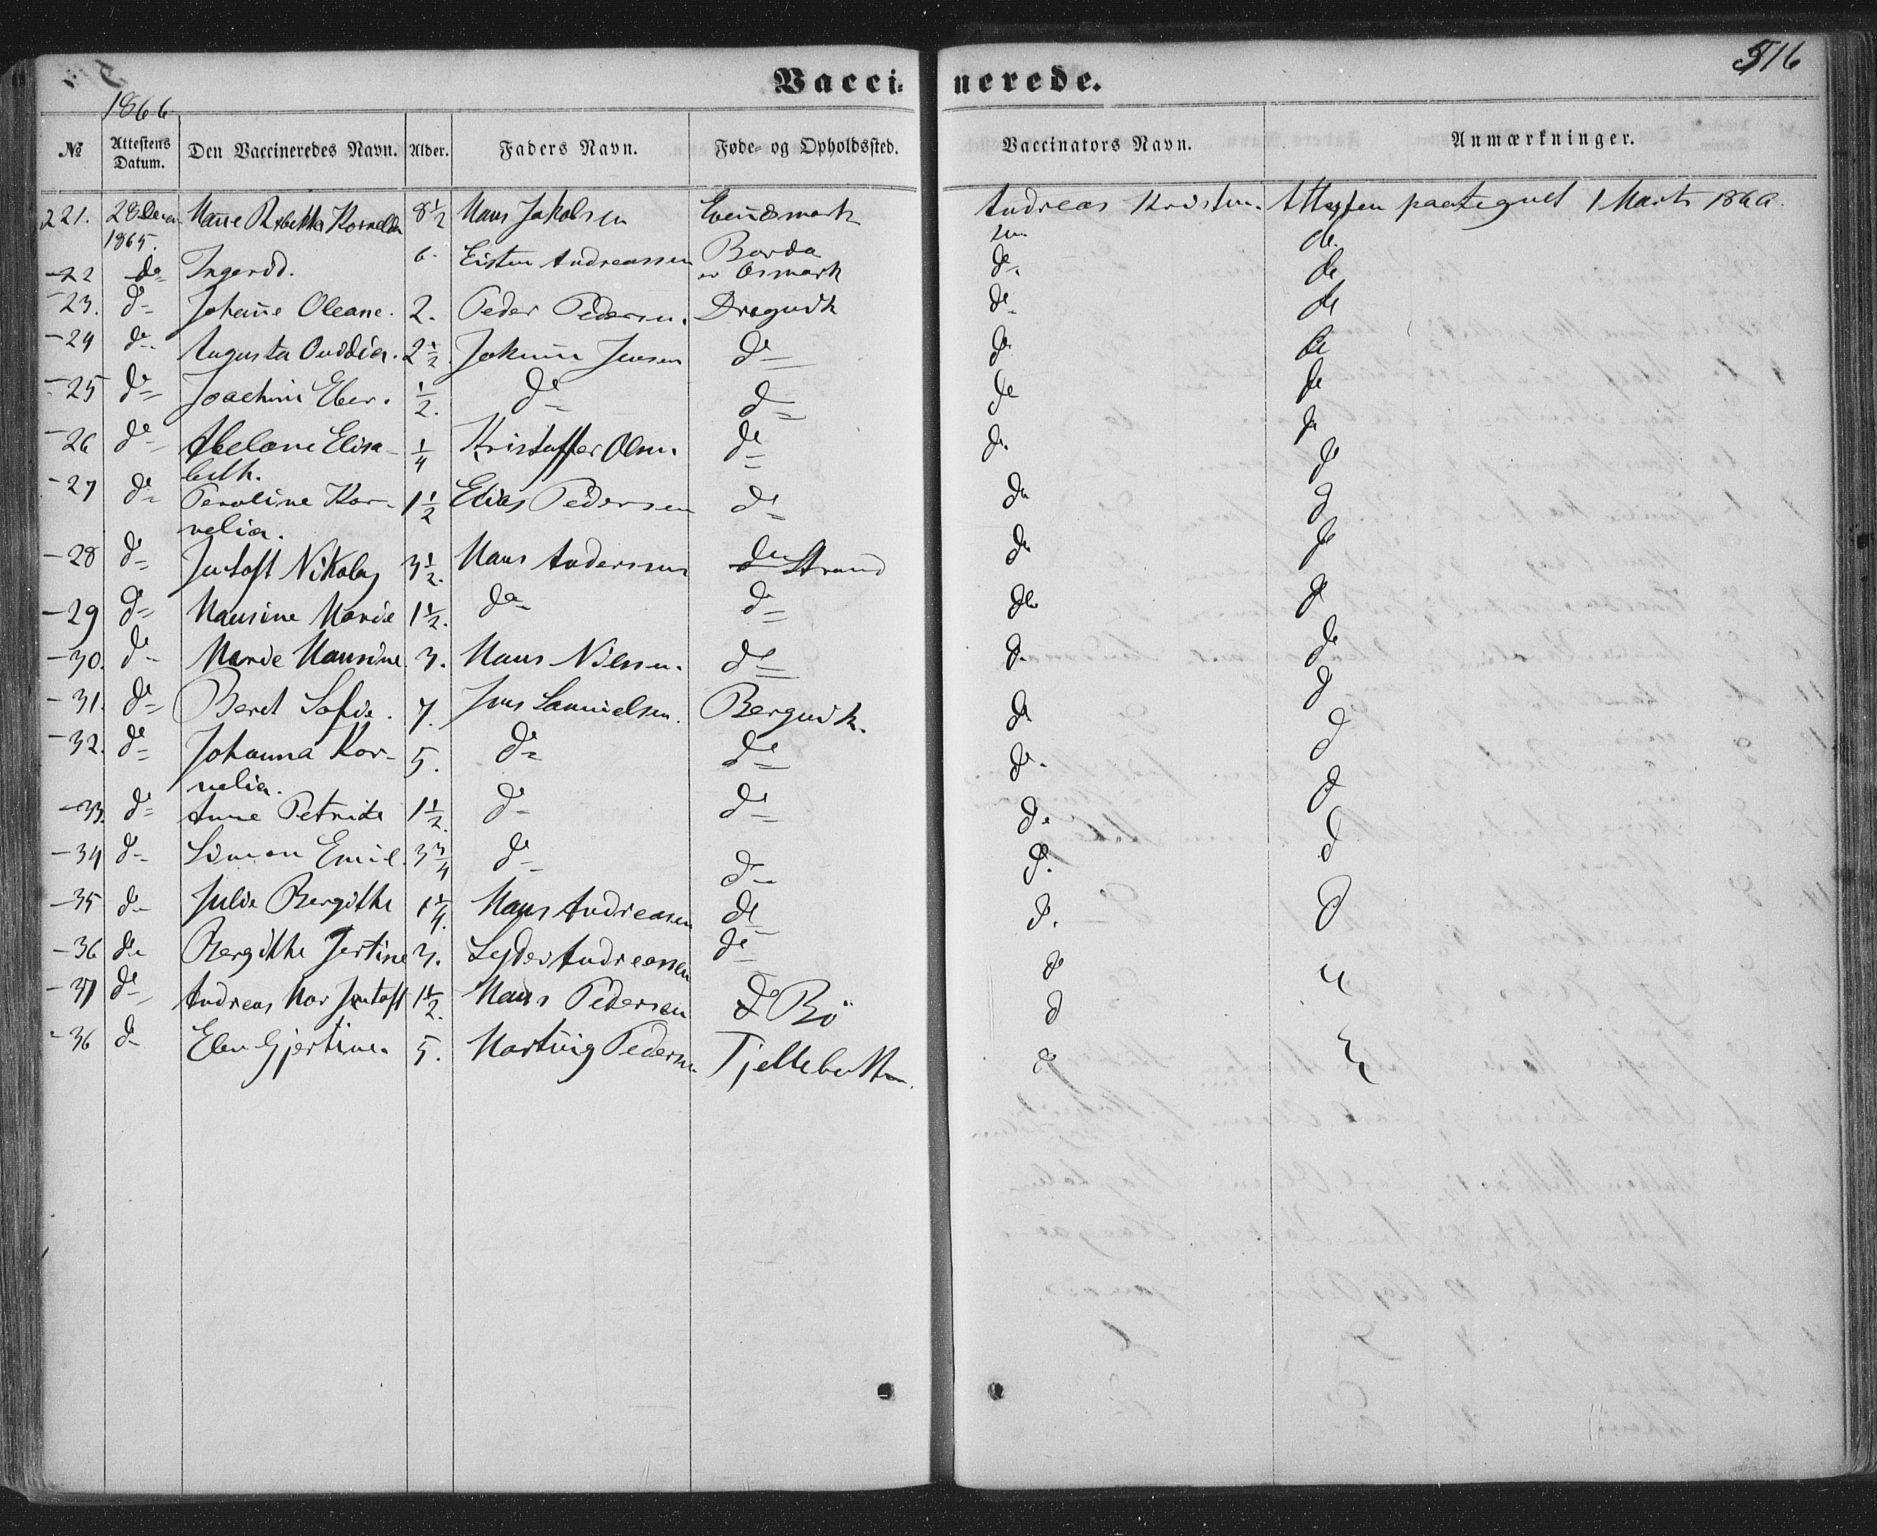 516
Vaccinerede.
1866
№ Attestens Datum. Den Vaccineredes Navn. Alder. Faders Navn. Føde- og Opholdssted. Vaccinators Navn. Anmærkninger.
221. 28 1865. Rebekka 8½ Hans Jakobsen Andreas Kristen- Attesten paategnet 1 Marts
sen
-22 do Ingerid. 6. Eisten Andreassen do do
-23. do Johanne Oleane. 2. Peder Pedersen. do do
-24 do Augusta 2½ Jensen do do do
-25 do Joachim Eber. ½ do do do do
-26 do Abelone Elisa- ¼ Kristoffer Olsen do do do
beth.
-27 do Peroline Kor- 1½ Elias Pedersen do do do
nelia.
-28 do Jentoft Nikolay 3½ Hans Andersen Strand do do
-29 do Hansine Marie 1½ do do do do
-30. do Marie Hansine 3. Hans Nilsen. do do do
-31. do Beret Sofie. 7. Jens Samuelsen. Bergvik. do do
-32. do Johanna Kor- 5. do do do do
nelia.
-33. do Anne Petrike 1½ do do do do
-34 do Simon Emil 3¾ do do do do
-35 do Julie Bergitha 1¼ Hans Andreasen do do do
-36 do Bergitha Jertine 3. Andreassen do do
-37 do Andreas Jentoft 1½ Hans Pedersen Bø do
-36 do Elen Gjertine. 5. Hartvig Pedersen do